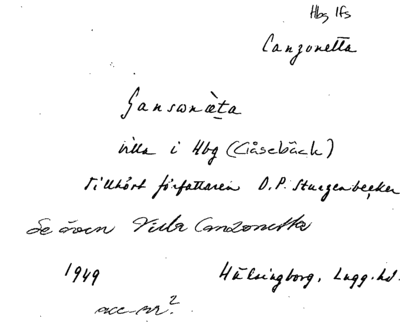 Hbg lfs
Canzonetta
Gansonæta
villa i Hbg (Gåsebäck)
Tillhört författaren O.P. Sturzenbecker
Se även Villa Canzonetta
1949 Hälsingborg, Lugg. hd.
acc-nr?